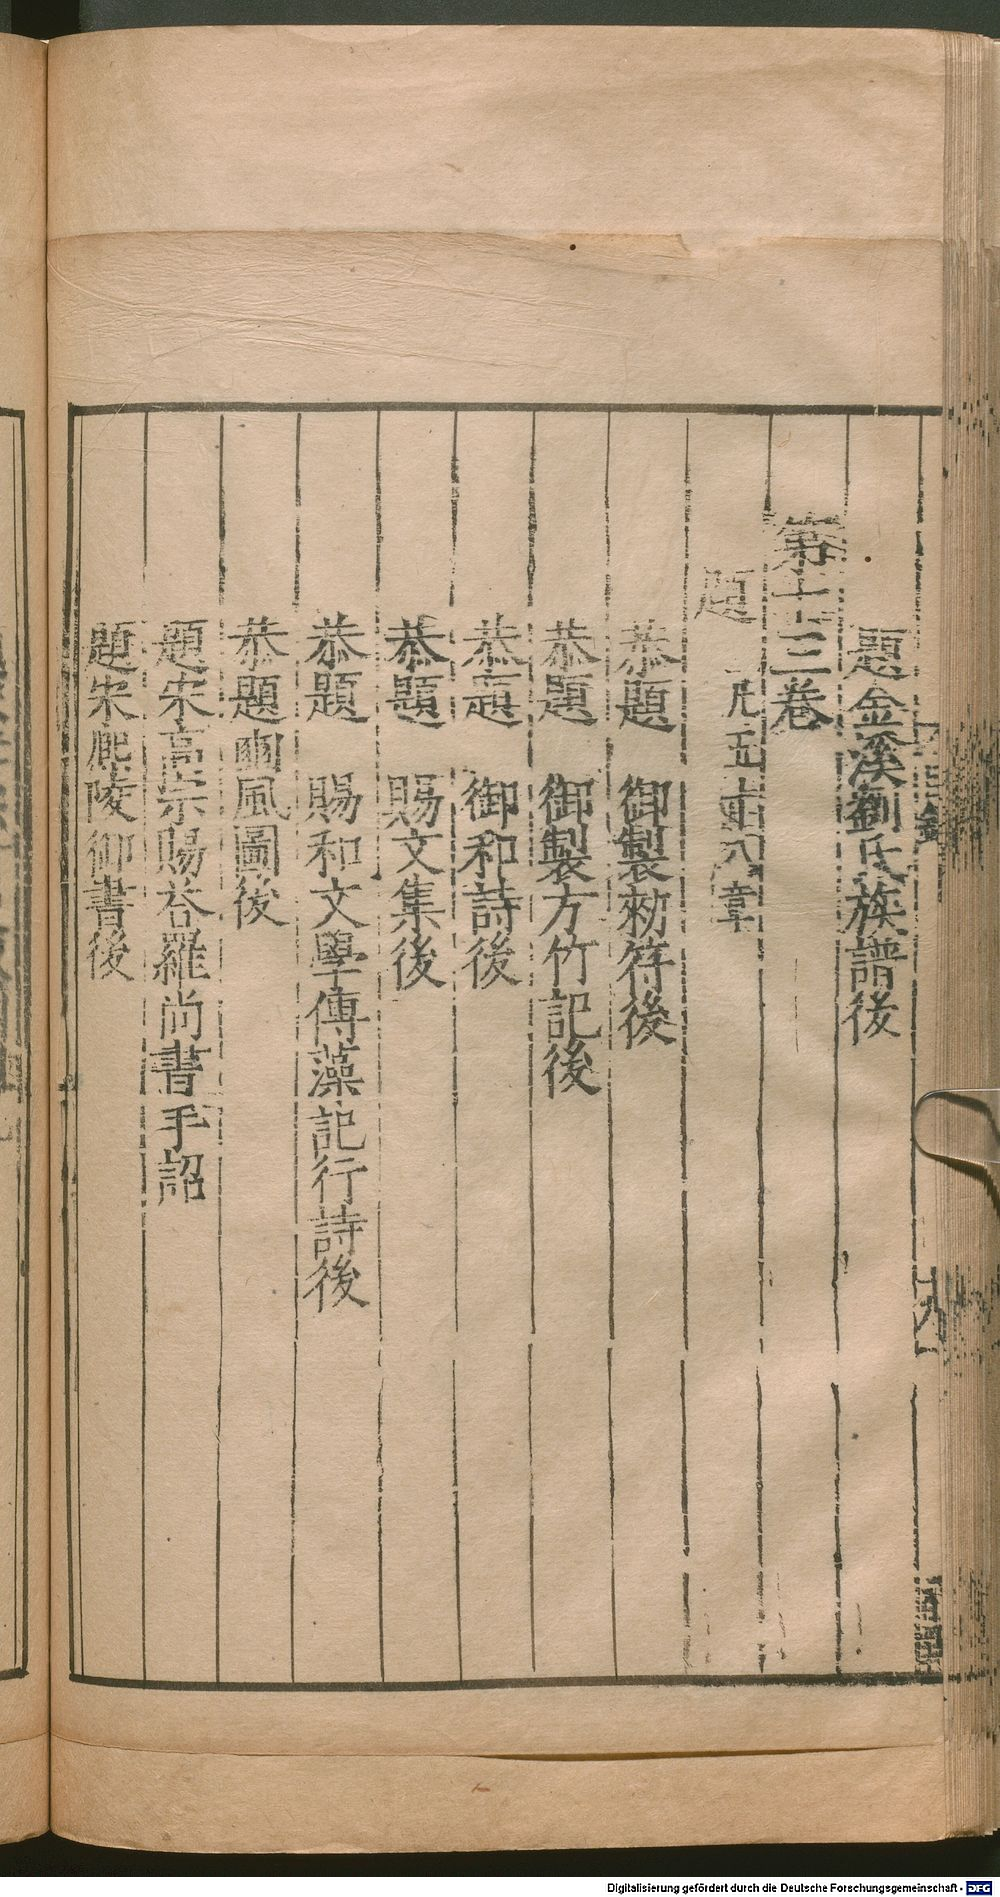 題金溪劉氏族譜後
第十三卷
題 凡五十八章
恭題 御製勑符後
恭題 御製方竹記後
恭題 御和詩後
恭題 賜文集後
恭題 賜和文學傳藻記行詩後
恭題豳風圖後
題宋高宗賜答羅尚書手詔
題宋熙陵御書後
Digitalisierung gefördert durch die Deutsche Forschungsgemeinschaft - DFG